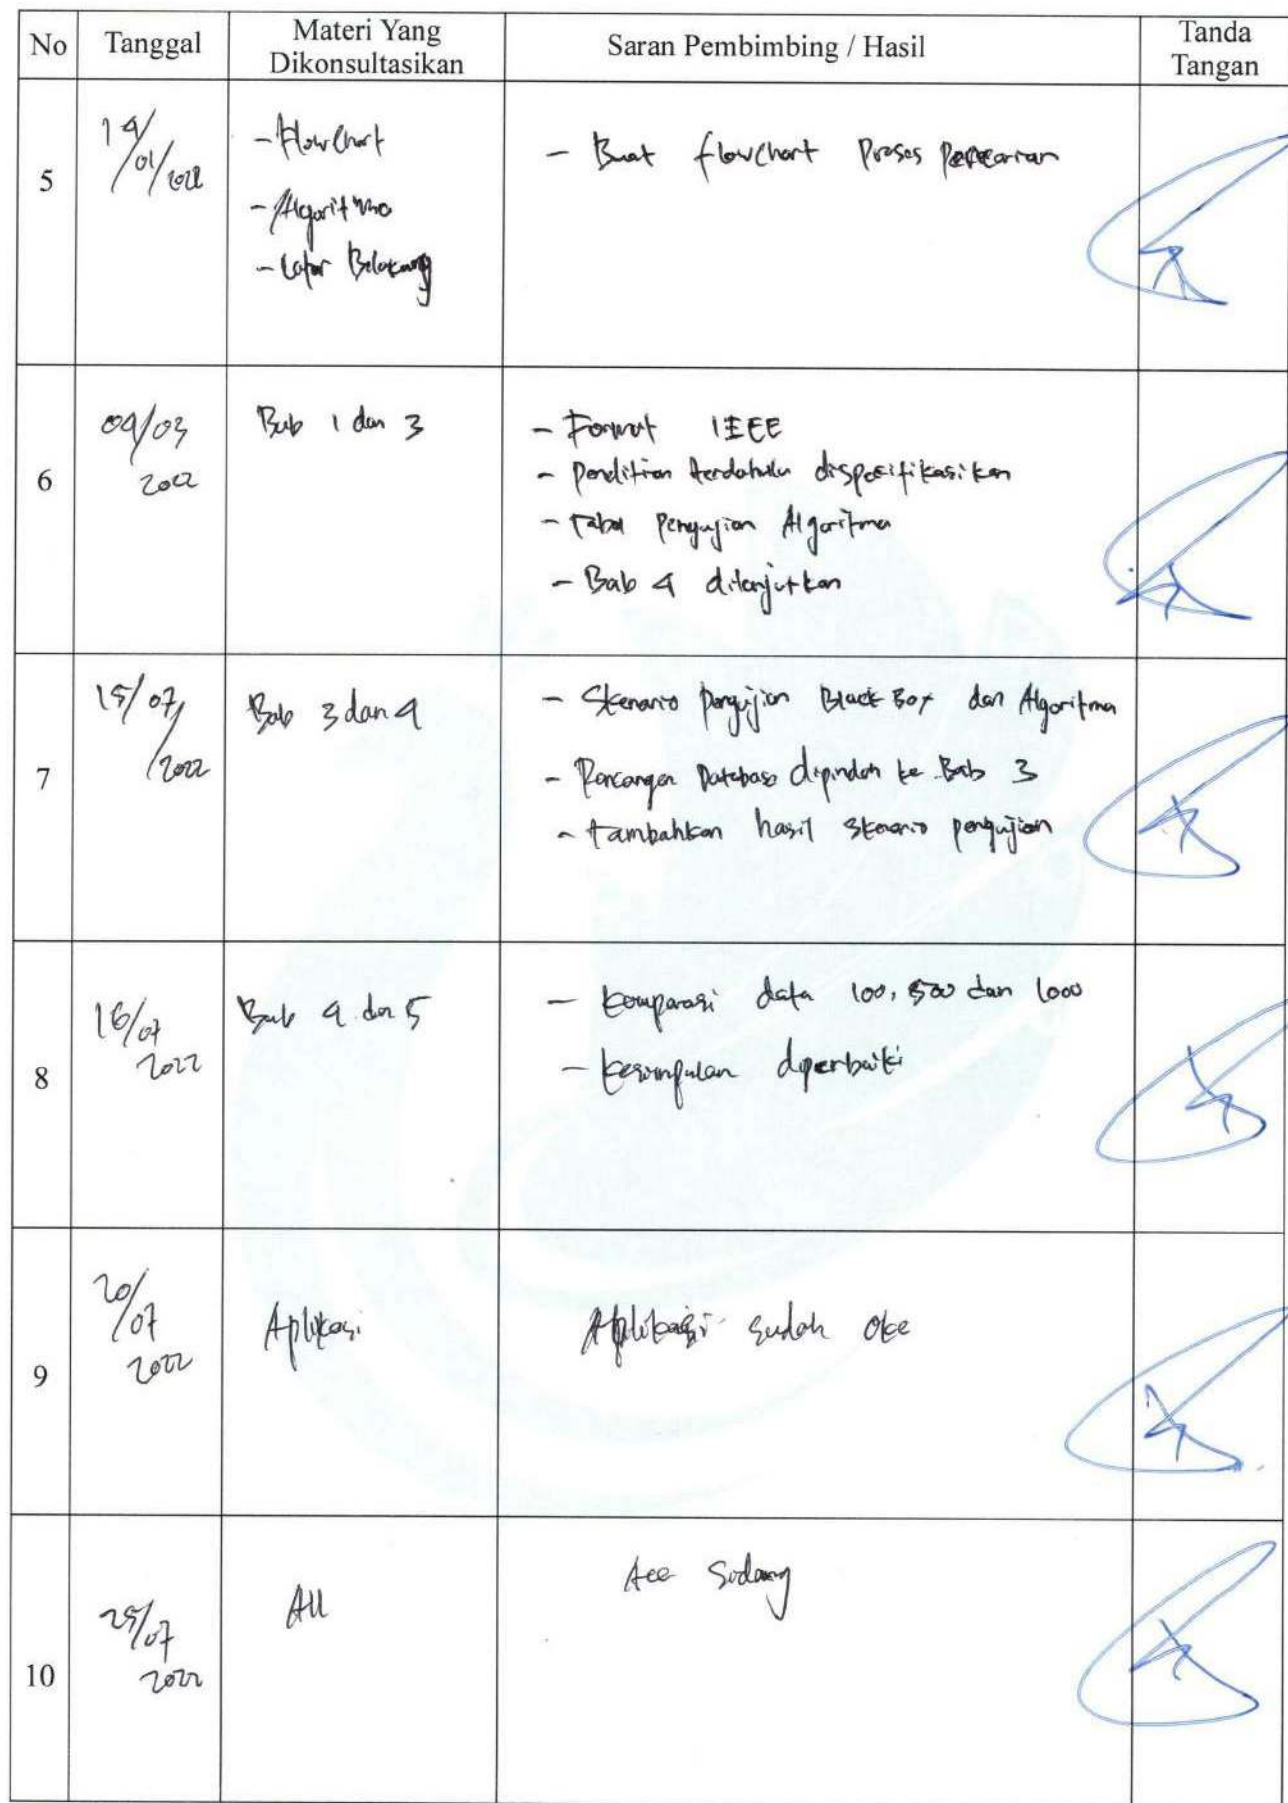 No Tanggal Materi Yang Dikonsultasikan Saran Pembimbing / Hasil Tanda Tangan
5 14/01/2022
- Flowchart
- Algoritma
- Latar Belakang
- Buat flowchart Proses Pencarian
6 04/03 2022
Bab 1 dan 3
- Format IEEE
- Penelitian terdahulu dispesifikasikan
- Tabel Pengujian Algoritma
- Bab 4 dilanjutkan
7 15/07/2022
Bab 3 dan 4
- Skenario pengujian Black Box dan Algoritma
- Rancangan Database dipindah ke Bab 3
- tambahkan hasil skenario pengujian
8 16/07 2022
Bab 4 dan 5
- komparasi data 100, 500 dan 1000
- kesimpulan diperbaiki
9 20/07 2022
Aplikasi
Aplikasi sudah oke
10 25/07 2022
All
Acc Sidang